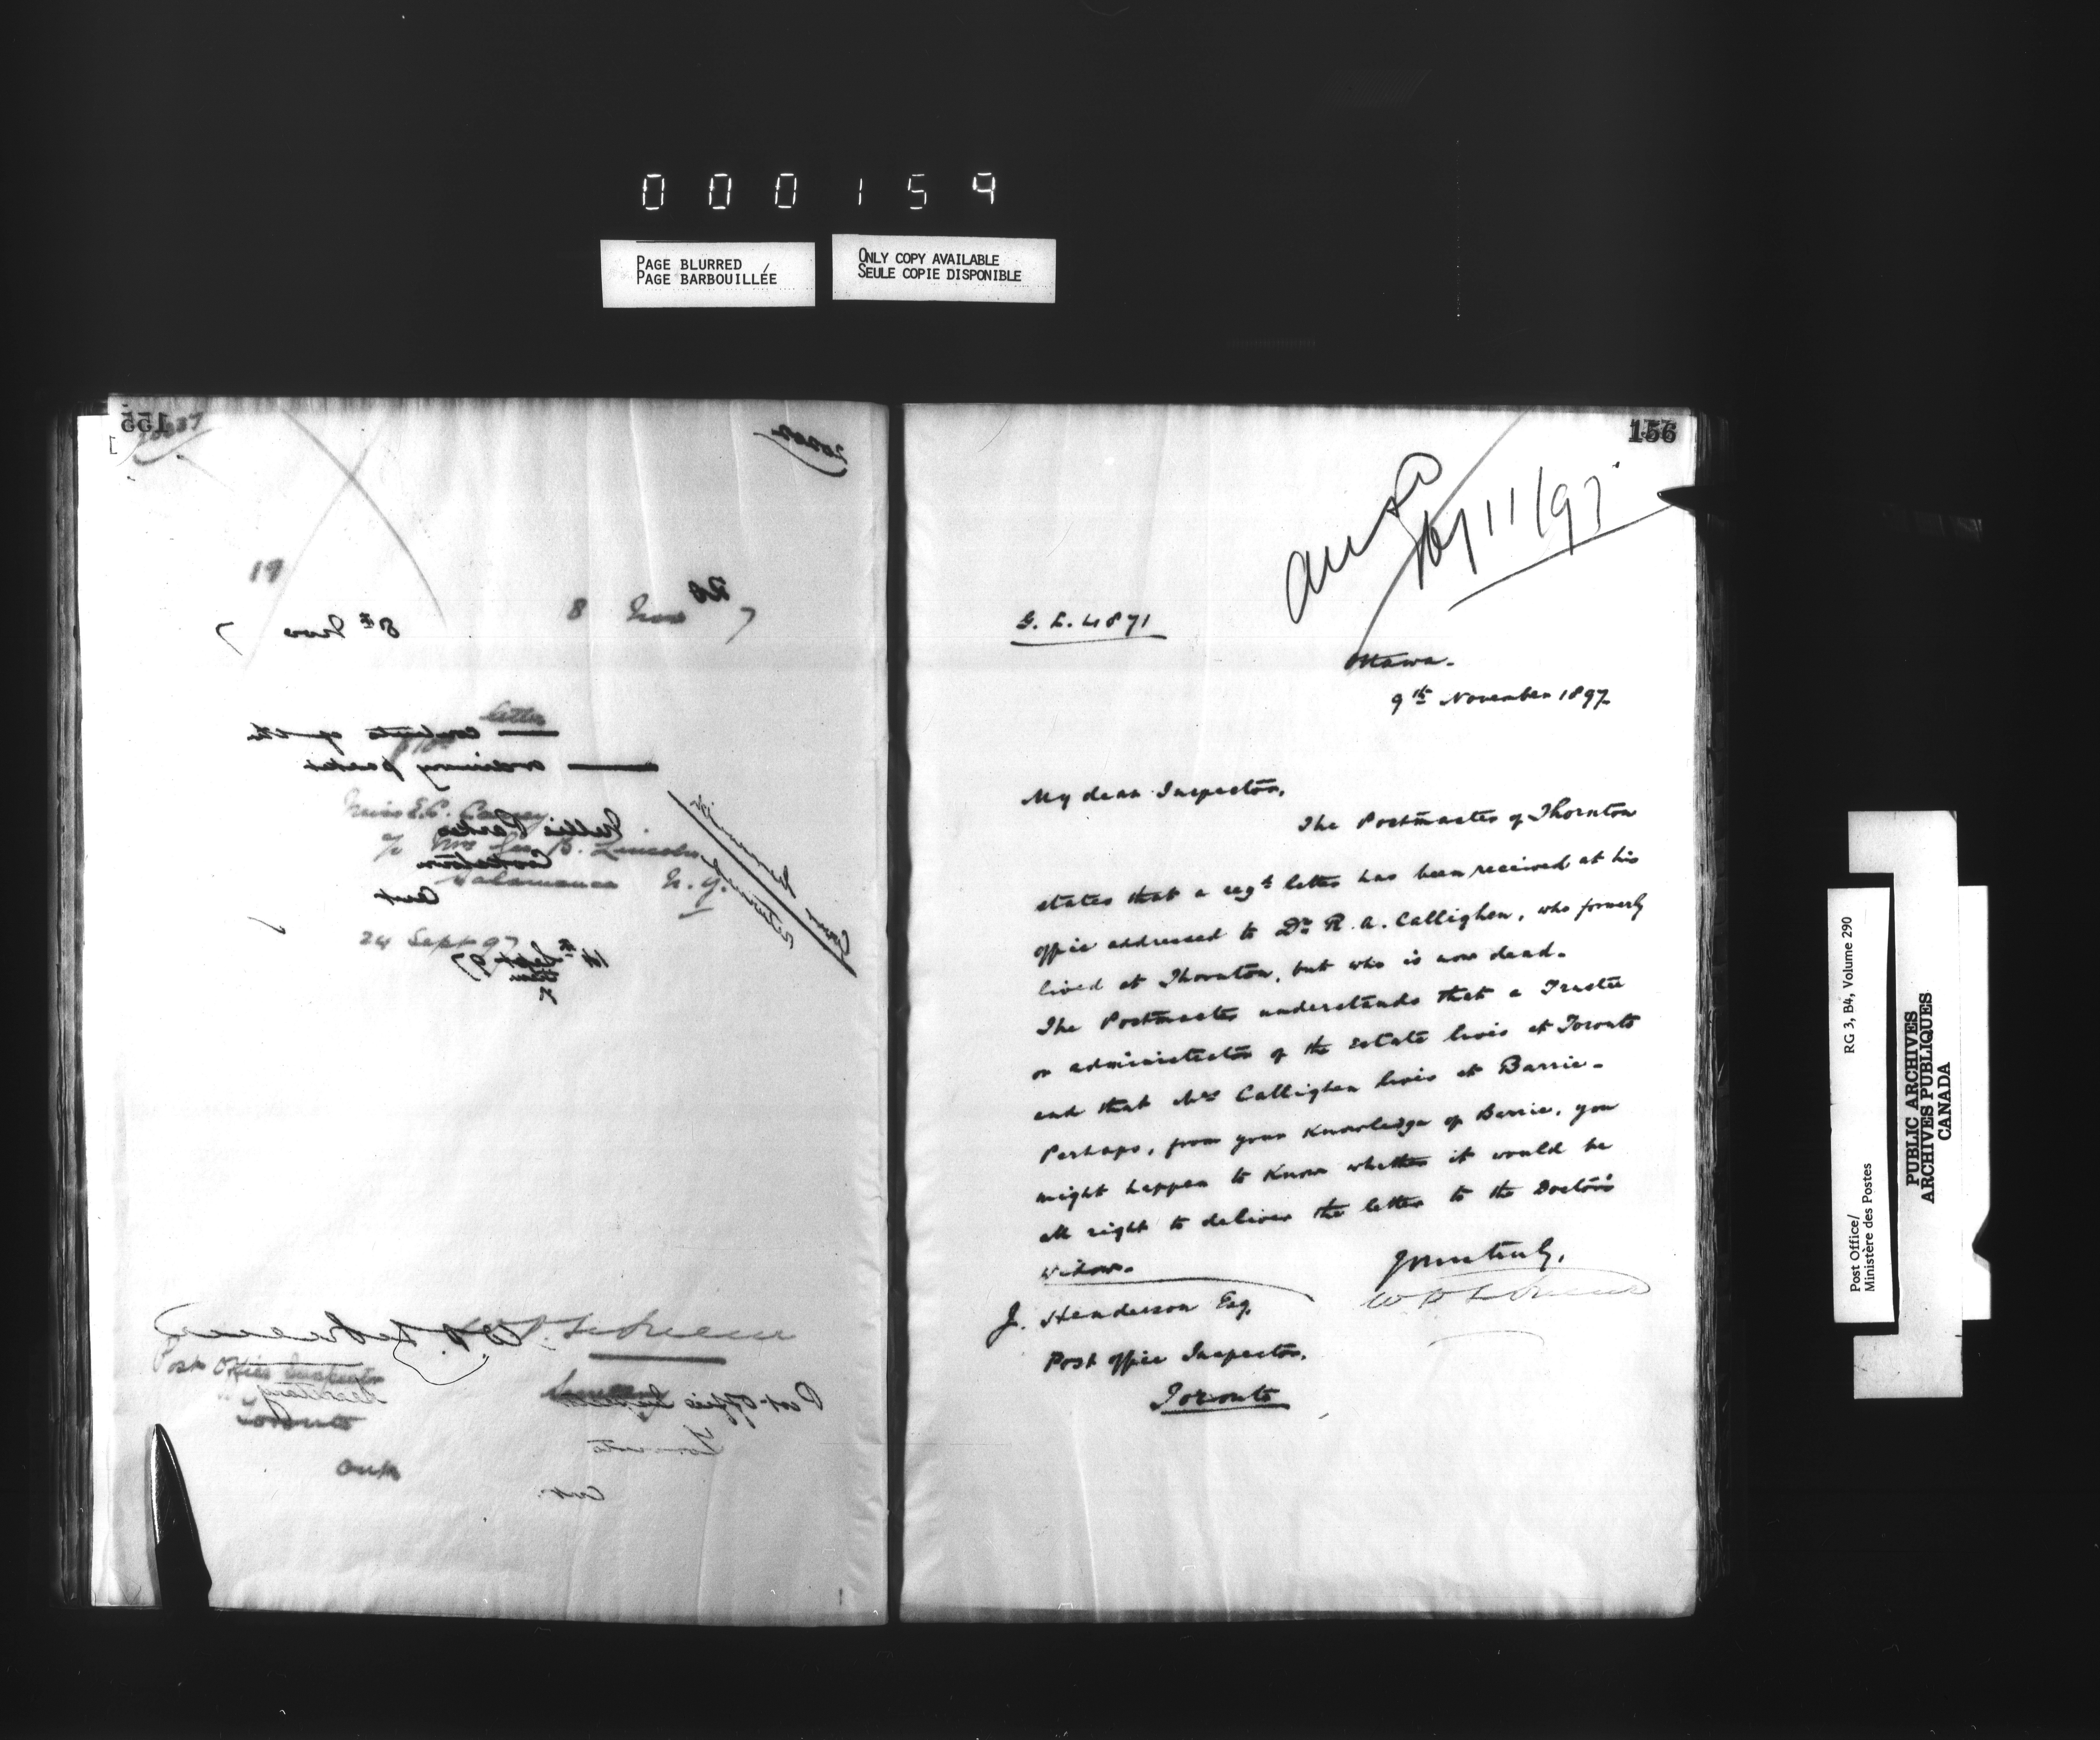 000159
PAGE BLURRED
PAGE BARBOUILLÉE
ONLY COPY AVAILABLE
SEULE COPIE DISPONIBLE
155
19
8 Nov 7
8th Nov 7
letter
ordinary packet
Miss E.C. Casey
Nellie Parker
c/o Mrs Geo. B. Lincoln
Cookstown
Salamanca N.Y.
Ont
24 Sept 97
14th Sept 97
Post Office Inspector
Secretary
Toronto
Ont
Post Office Inspector
Toronto
Ont.
156
Ansd
Nov 11/97
G. L. 4871
Ottawa.
9th November 1897.
My dear Inspector,
The Postmaster of Thornton
states that a regd letter has been received at his
office addressed to Dr. R. A. Callighen, who formerly
lived at Thornton, but who is now dead.
The Postmaster understands that a Trustee
or administrator of the estate lives at Toronto
and that Mrs Callighen lives at Barrie.
Perhaps, from your knowledge of Barrie, you
might happen to know whether it would be
all right to deliver the letter to the Doctor's
widow.
Yours truly,
J. Henderson Esq.
Post Office Inspector,
Toronto
Post Office/
Ministère des Postes
RG 3, B4, Volume 290
PUBLIC ARCHIVES
ARCHIVES PUBLIQUES
CANADA